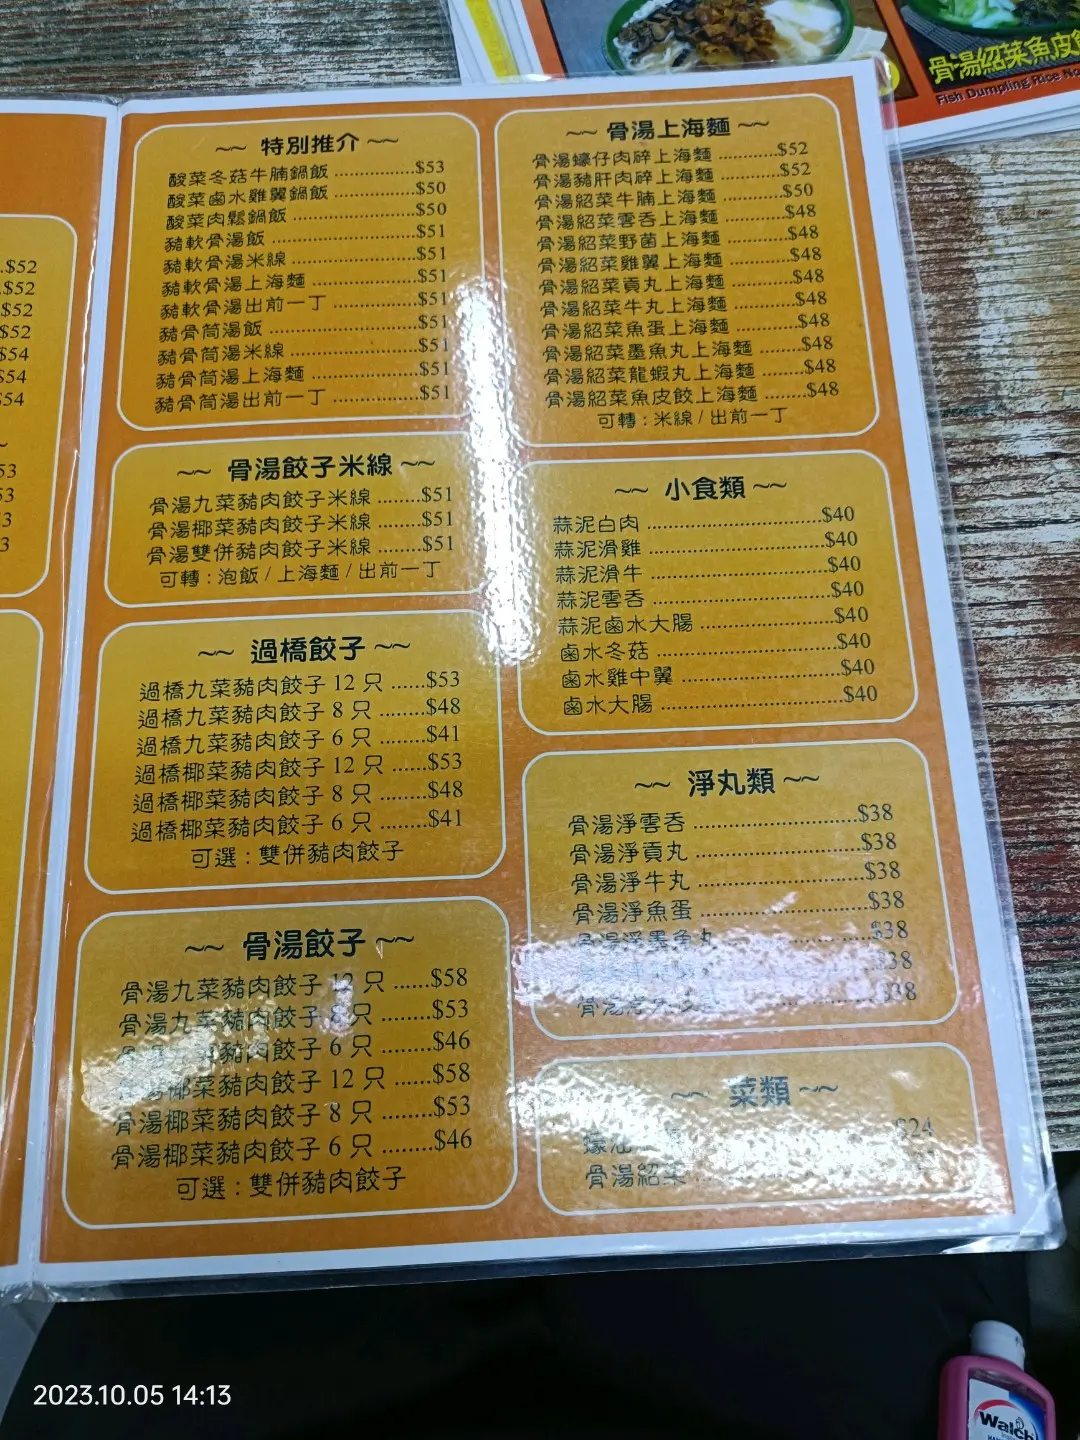 骨湯紹菜魚皮
Fish Dumpling Rice No
.$52
.$52
$52
$52
$54
$54
$54
~
53
53
3
3
~~ 特別推介 ~~
酸菜冬菇牛腩鍋飯 ...............$53
酸菜鹵水雞翼鍋飯 ...............$50
酸菜肉鬆鍋飯 ......................$50
豬軟骨湯飯 ..........................$51
豬軟骨湯米線 .......................$51
豬軟骨湯上海麵 ....................$51
豬軟骨湯出前一丁 .................$51
豬骨筒湯飯 ..........................$51
豬骨筒湯米線 .......................$51
豬骨筒湯上海麵 ....................$51
豬骨筒湯出前一丁 .................$51
~~ 骨湯餃子米線 ~~
骨湯九菜豬肉餃子米線 ........$51
骨湯椰菜豬肉餃子米線 ........$51
骨湯雙併豬肉餃子米線 ........$51
可轉 : 泡飯 / 上海麵 / 出前一丁
~~ 過橋餃子 ~~
過橋九菜豬肉餃子 12 只 ......$53
過橋九菜豬肉餃子 8 只 ........$48
過橋九菜豬肉餃子 6 只 ........$41
過橋椰菜豬肉餃子 12 只 ......$53
過橋椰菜豬肉餃子 8 只 ........$48
過橋椰菜豬肉餃子 6 只 ........$41
可選 : 雙併豬肉餃子
~~ 骨湯餃子 ~~
骨湯九菜豬肉餃子 12 只 ......$58
骨湯九菜豬肉餃子 8 只 ........$53
骨湯九菜豬肉餃子 6 只 ........$46
骨湯椰菜豬肉餃子 12 只 ......$58
骨湯椰菜豬肉餃子 8 只 ........$53
骨湯椰菜豬肉餃子 6 只 ........$46
可選 : 雙併豬肉餃子
~~ 骨湯上海麵 ~~
骨湯蠔仔肉碎上海麵 ............$52
骨湯豬肝肉碎上海麵 ............$52
骨湯紹菜牛腩上海麵 ............$50
骨湯紹菜雲吞上海麵 ............$48
骨湯紹菜野菌上海麵 ............$48
骨湯紹菜雞翼上海麵 ............$48
骨湯紹菜貢丸上海麵 ............$48
骨湯紹菜牛丸上海麵 ............$48
骨湯紹菜魚蛋上海麵 ............$48
骨湯紹菜墨魚丸上海麵 ........$48
骨湯紹菜龍蝦丸上海麵 ........$48
骨湯紹菜魚皮餃上海麵 ........$48
可轉 : 米線 / 出前一丁
~~ 小食類 ~~
蒜泥白肉 ..............................$40
蒜泥滑雞 ..............................$40
蒜泥滑牛 ..............................$40
蒜泥雲吞 ..............................$40
蒜泥鹵水大腸 .......................$40
鹵水冬菇 ..............................$40
鹵水雞中翼 ..........................$40
鹵水大腸 ..............................$40
~~ 淨丸類 ~~
骨湯淨雲吞 ..........................$38
骨湯淨貢丸 ..........................$38
骨湯淨牛丸 ..........................$38
骨湯淨魚蛋 ..........................$38
骨湯淨墨魚丸 .......................$38
$38
骨湯淨 $38
~~ 菜類 ~~
蠔油 $24
骨湯紹菜
2023.10.05 14:13
Walch